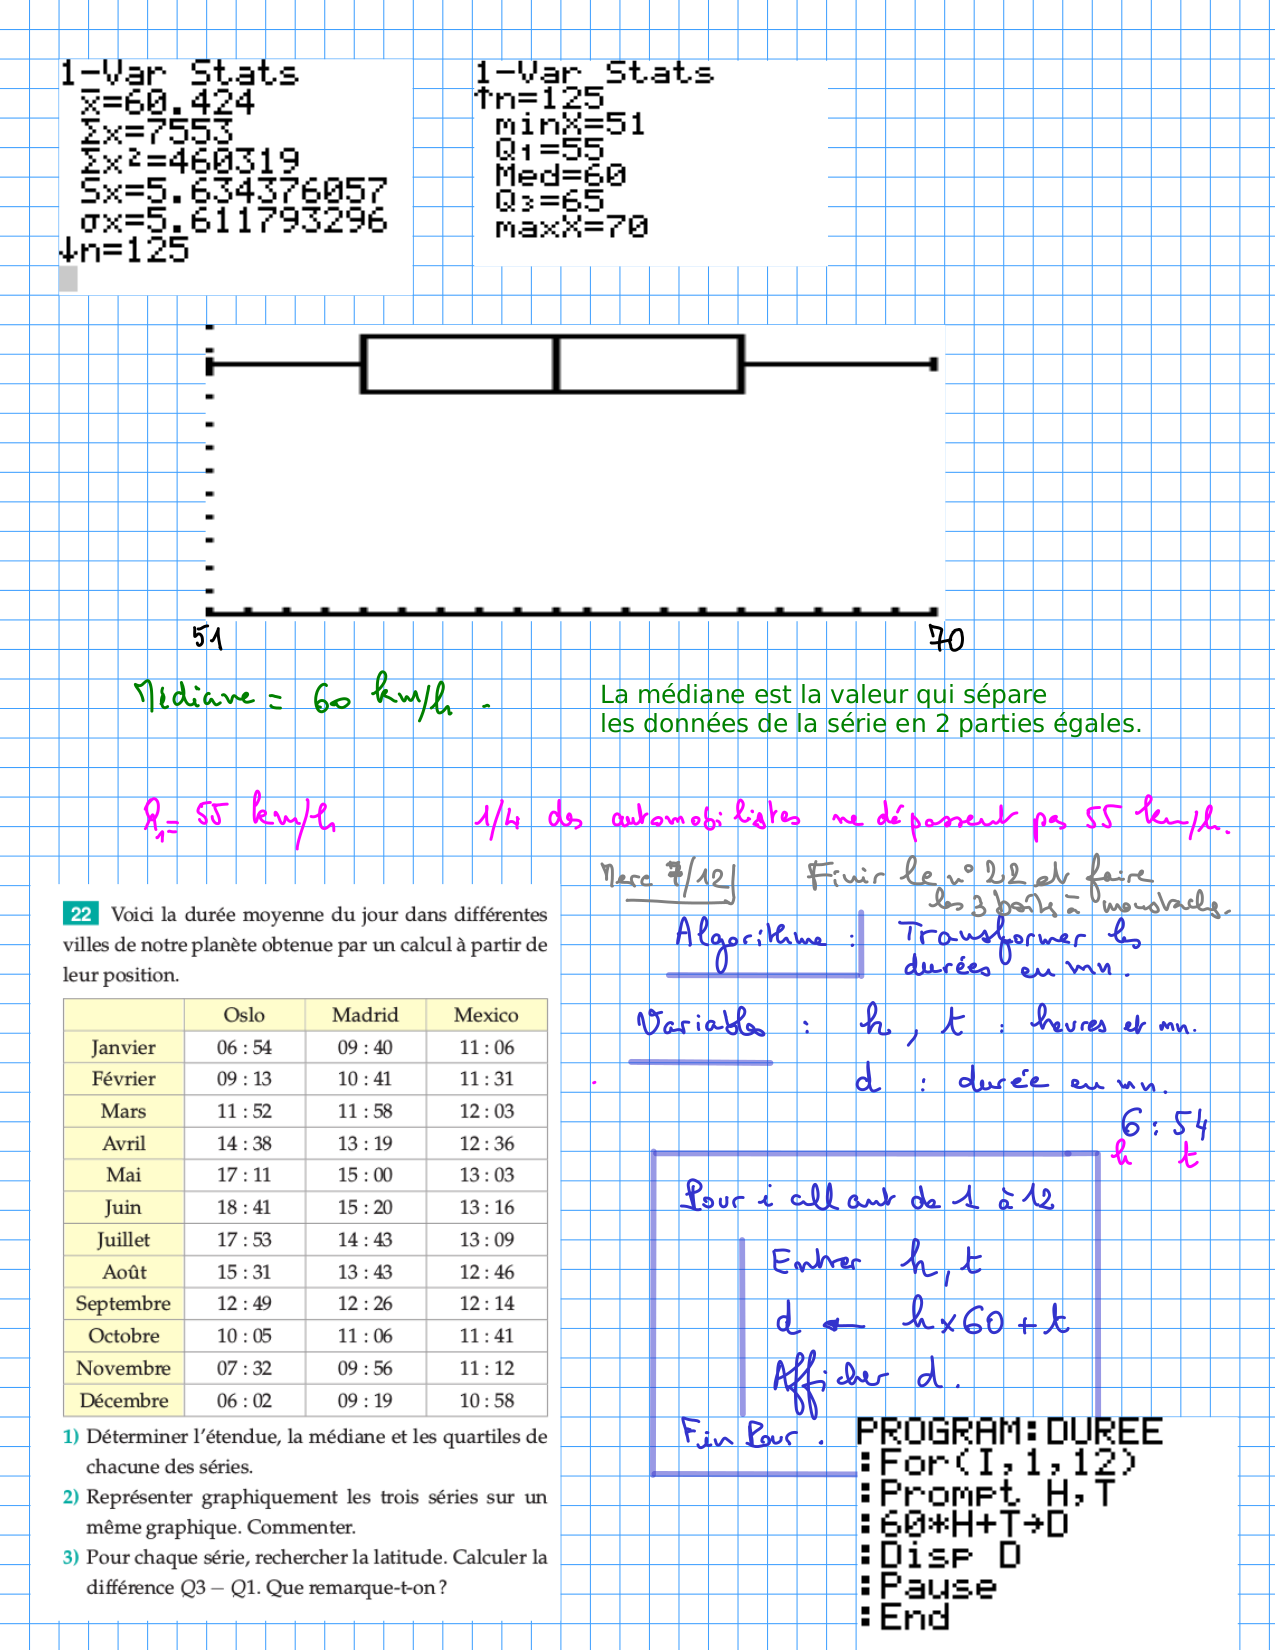 1-Var Stats
x̄=60.424
Σx=7553
Σx²=460319
Sx=5.634376057
σx=5.611793296
↓n=125
1-Var Stats
↑n=125
minX=51
Q₁=55
Med=60
Q₃=65
maxX=70
51
70
Médiane = 60 km/h.
La médiane est la valeur qui sépare
les données de la série en 2 parties égales.
Q₁= 55 km/h
1/4 des automobilistes ne dépassent pas 55 km/h.
Merc 7/12
Finir le n° 22 et faire
les 3 boîts à moustachs.
22 Voici la durée moyenne du jour dans différentes
villes de notre planète obtenue par un calcul à partir de
leur position.
Oslo Madrid Mexico
Janvier 06 : 54 09 : 40 11 : 06
Février 09 : 13 10 : 41 11 : 31
Mars 11 : 52 11 : 58 12 : 03
Avril 14 : 38 13 : 19 12 : 36
Mai 17 : 11 15 : 00 13 : 03
Juin 18 : 41 15 : 20 13 : 16
Juillet 17 : 53 14 : 43 13 : 09
Août 15 : 31 13 : 43 12 : 46
Septembre 12 : 49 12 : 26 12 : 14
Octobre 10 : 05 11 : 06 11 : 41
Novembre 07 : 32 09 : 56 11 : 12
Décembre 06 : 02 09 : 19 10 : 58
1) Déterminer l'étendue, la médiane et les quartiles de
chacune des séries.
2) Représenter graphiquement les trois séries sur un
même graphique. Commenter.
3) Pour chaque série, rechercher la latitude. Calculer la
différence Q3 − Q1. Que remarque-t-on ?
Algorithme : Transformer les
durées en mn.
Variables : h, t : heures et mn.
d : durée en mn.
6 : 54
h t
Pour i allant de 1 à 12
Entrer h, t
d ← h×60 + t
Afficher d.
Fin Pour.
PROGRAM:DUREE
:For(I,1,12)
:Prompt H,T
:60*H+T→D
:Disp D
:Pause
:End